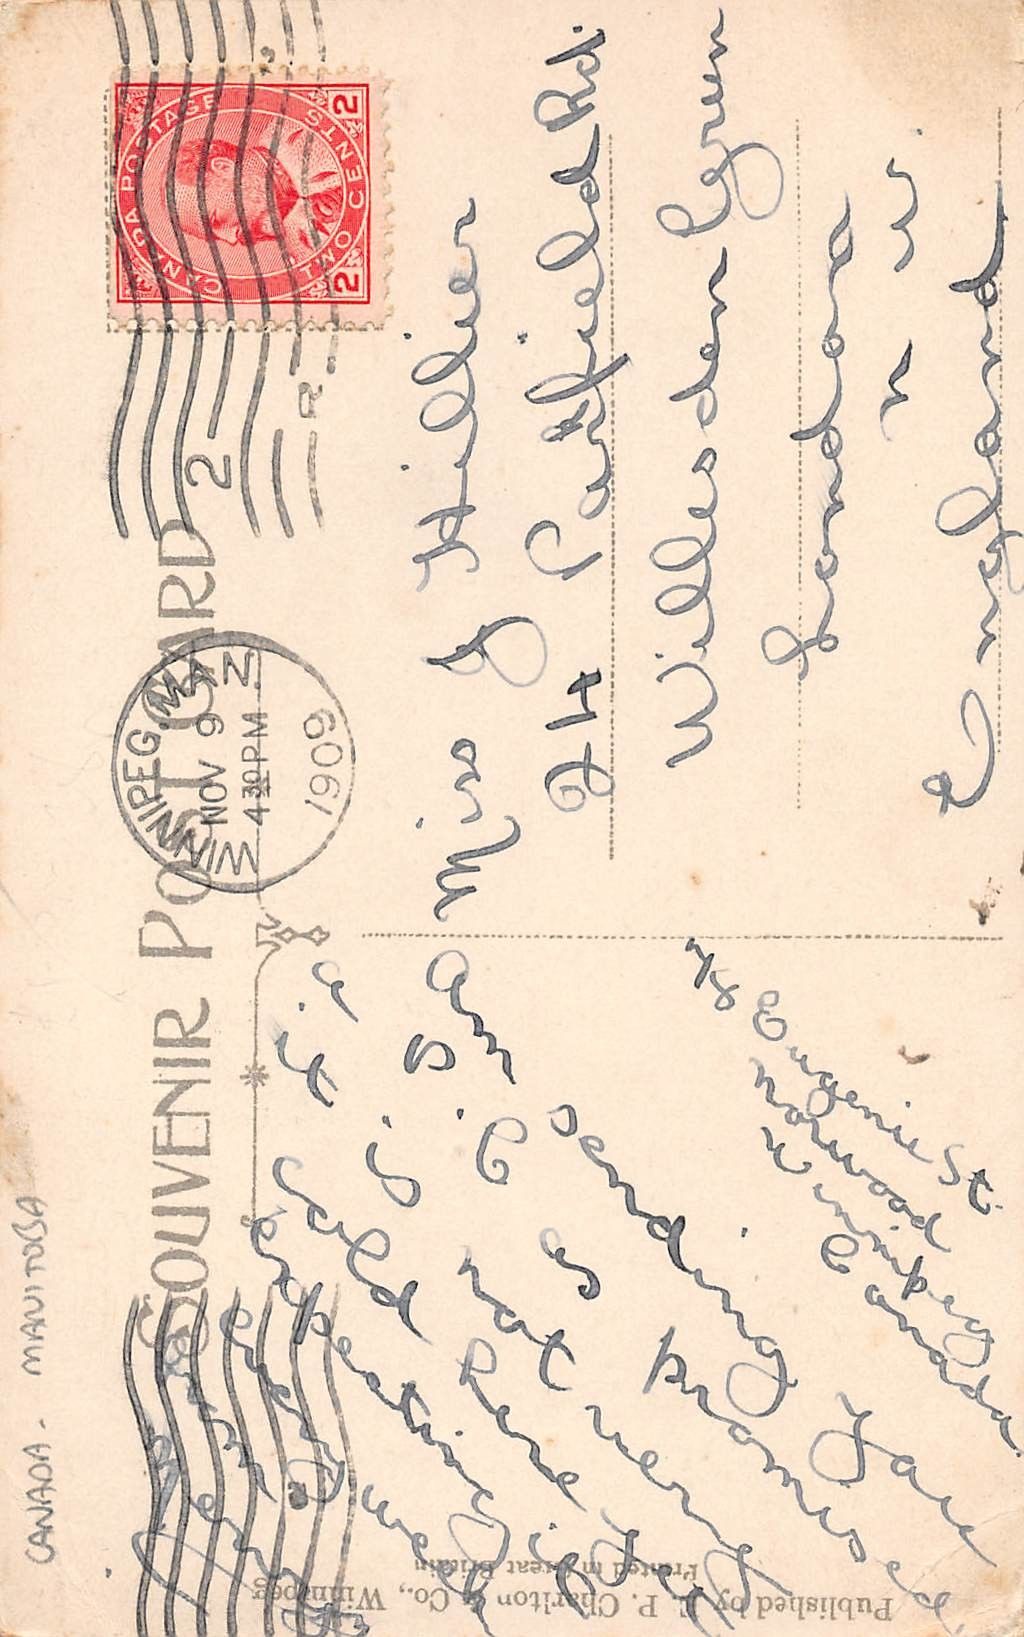 CANADA - MANITOBA
SOUVENIR POST CARD
CANADA POSTAGE
TWO CENTS
2 2
WINNIPEG, MAN
NOV 9
4 30 P.M.
1909
2
2
Miss J Hillier
24 Parkfield Rd.
Willesden Green
London
N W
England
74 Eugenie St.
Norwood
Winnipeg
Canada
Am sending you
P.C. as promised
it is not very
cold here yet
expecting it
every
Published by E. P. Charlton & Co., Winnipeg
Printed in Great Britain